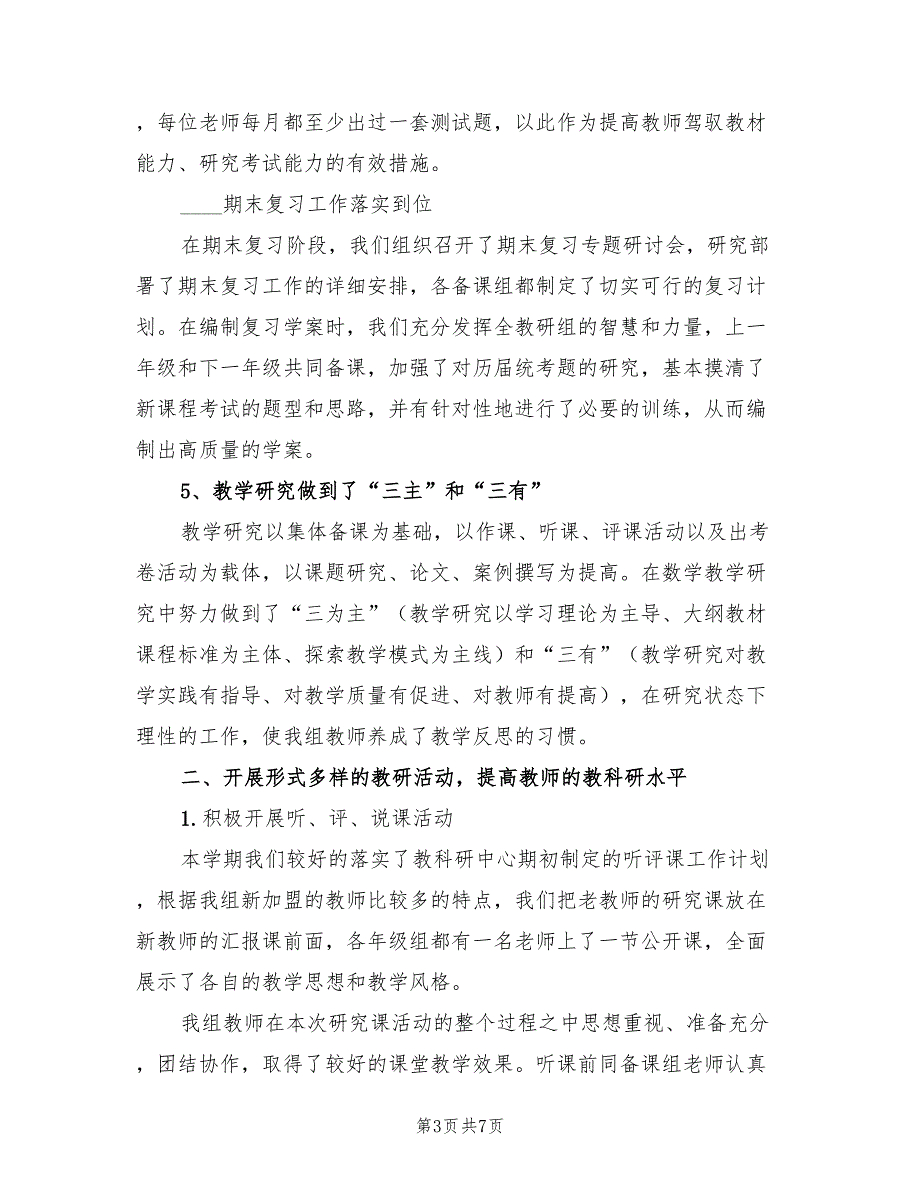 ，每位老师每月都至少出过一套测试题，以此作为提高教师驾驭教材
能力、研究考试能力的有效措施。
____期末复习工作落实到位
在期末复习阶段，我们组织召开了期末复习专题研讨会，研究部
署了期末复习工作的详细安排，各备课组都制定了切实可行的复习计
划。在编制复习学案时，我们充分发挥全教研组的智慧和力量，上一
年级和下一年级共同备课，加强了对历届统考题的研究，基本摸清了
新课程考试的题型和思路，并有针对性地进行了必要的训练，从而编
制出高质量的学案。
5、教学研究做到了“三主”和“三有”
教学研究以集体备课为基础，以作课、听课、评课活动以及出考
卷活动为载体，以课题研究、论文、案例撰写为提高。在数学教学研
究中努力做到了“三为主”（教学研究以学习理论为主导、大纲教材
课程标准为主体、探索教学模式为主线）和“三有”（教学研究对教
学实践有指导、对教学质量有促进、对教师有提高），在研究状态下
理性的工作，使我组教师养成了教学反思的习惯。
二、开展形式多样的教研活动，提高教师的教科研水平
1.积极开展听、评、说课活动
本学期我们较好的落实了教科研中心期初制定的听评课工作计划
，根据我组新加盟的教师比较多的特点，我们把老教师的研究课放在
新教师的汇报课前面，各年级组都有一名老师上了一节公开课，全面
展示了各自的教学思想和教学风格。
我组教师在本次研究课活动的整个过程之中思想重视、准备充分
，团结协作，取得了较好的课堂教学效果。听课前同备课组老师认真
第3页共7页